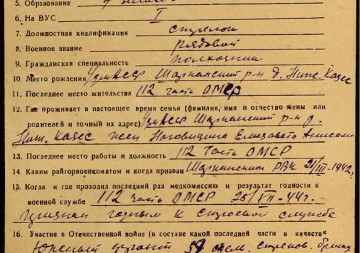 5. Образование
6. На ВУС I
7. Должностная квалификация стрелок
8. Военное звание рядовой
9. Гражданская специальность полковник
10. Место рождения УдмАССР Шарканский р-н д. Ниж. Казес
11. Последнее место жительства 112 часть ОМСР
12. Где проживает в настоящее время семья (фамилия, имя и отчество жены или
родителей и точный их адрес) УдмАССР Шарканский р-н д.
Ниж. Казес жена Наговицина Елизавета
13. Последнее место работы и должность 112 часть ОМСР
14. Каким райгорвоенкоматом и когда призван Шарканским РВК 1942г.
15. Когда и где проходил последний раз медкомиссию и результат годности к
военной службе 112 часть ОМСР 25/VII-44г.
признан годным к строевой службе
16. Участие в Отечественной войне (в составе какой последней части и в качестве
Южный фронт 59 стрелков. бригад